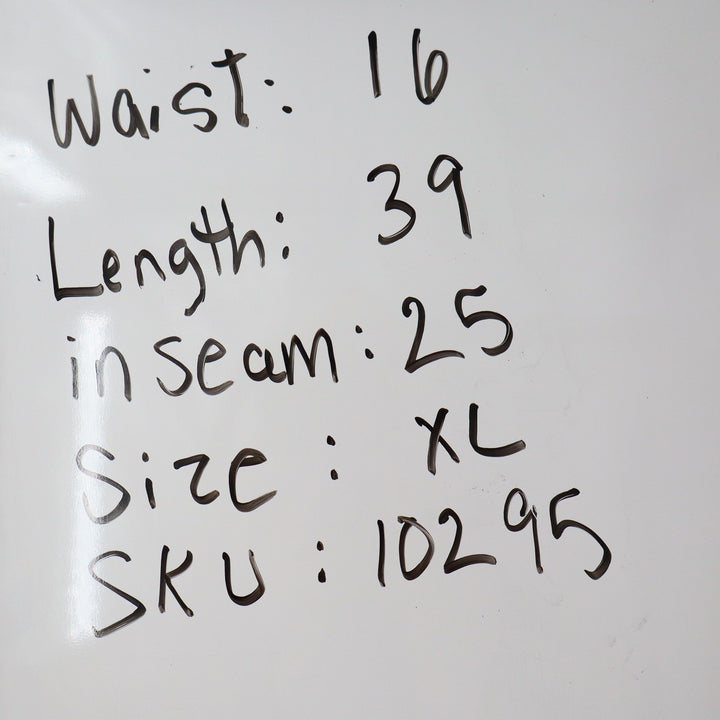 Waist: 16
Length: 39
inseam: 25
Size: XL
SKU: 10295